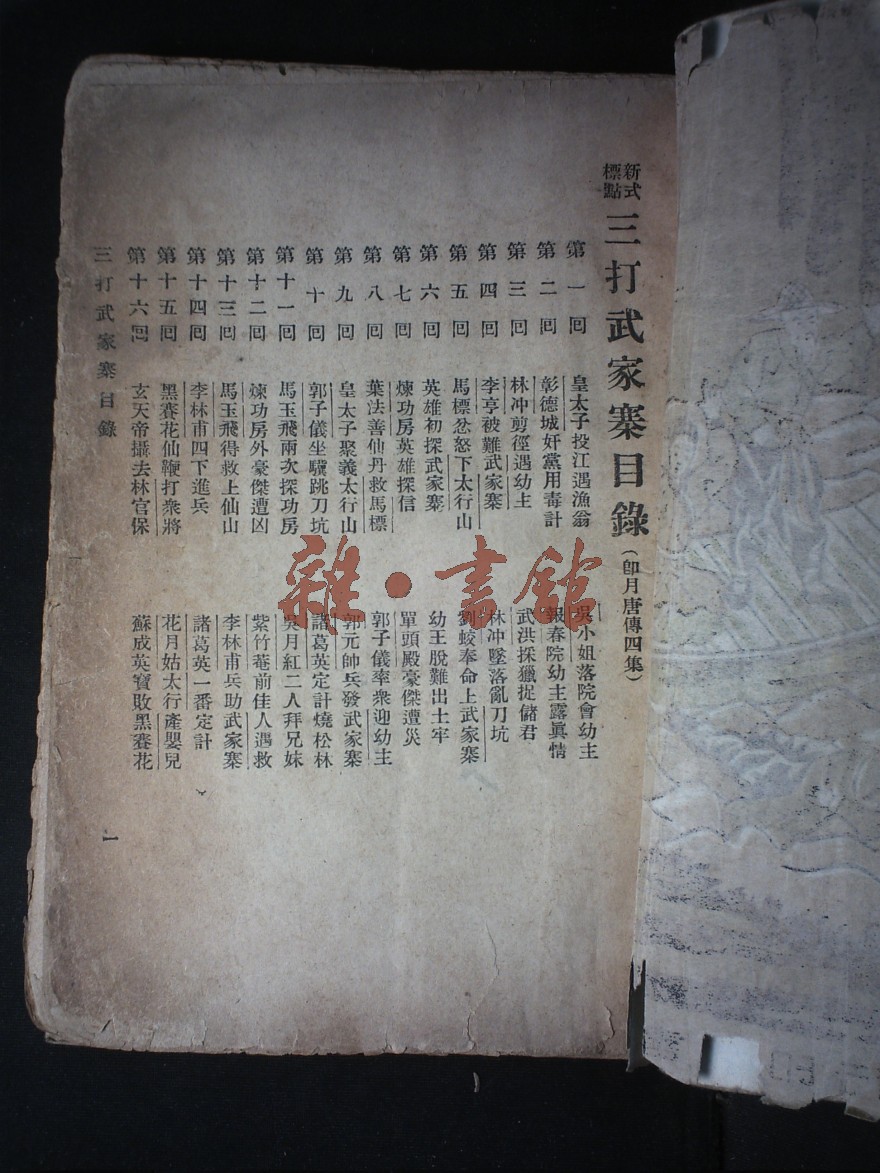 新式標點 三打武家寨目錄(卽月唐傳四集)
第一回 皇太子投江遇漁翁 吳小姐落院會幼主
第二回 彰德城奸黨用毒計 報春院幼主露眞情
第三回 林冲剪徑遇幼主 武洪採獵捉儲君
第四回 李亨被難武家寨 林冲墜落亂刀坑
第五回 馬標忿怒下太行山 劉蛟奉命上武家寨
第六回 英雄初探武家寨 幼王脫難出土牢
第七回 煉功房英雄探信 單頭殿豪傑遭災
第八回 葉法善仙丹救馬標 郭子儀率衆迎幼主
第九回 皇太子聚義太行山 郭元帥兵發武家寨
第十回 郭子儀坐驥跳刀坑 諸葛英定計燒松林
第十一回 馬玉飛兩次探功房 吳月紅二人拜兄妹
第十二回 煉功房外豪傑遭凶 紫竹菴前佳人遇救
第十三回 馬玉飛得救上仙山 李林甫兵助武家寨
第十四回 李林甫四下進兵 諸葛英一番定計
第十五回 黑賽花仙鞭打衆將 花月姑太行產嬰兒
第十六回 玄天帝攝去林官保 蘇成英寶敗黑賽花
三打武家寨目錄
一
雜·書館